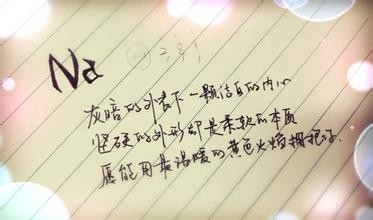 Na
灰暗的外表下一颗洁白的内心
坚硬的外形却是柔软的本质
愿能用最温暖的黄色火焰拥抱你